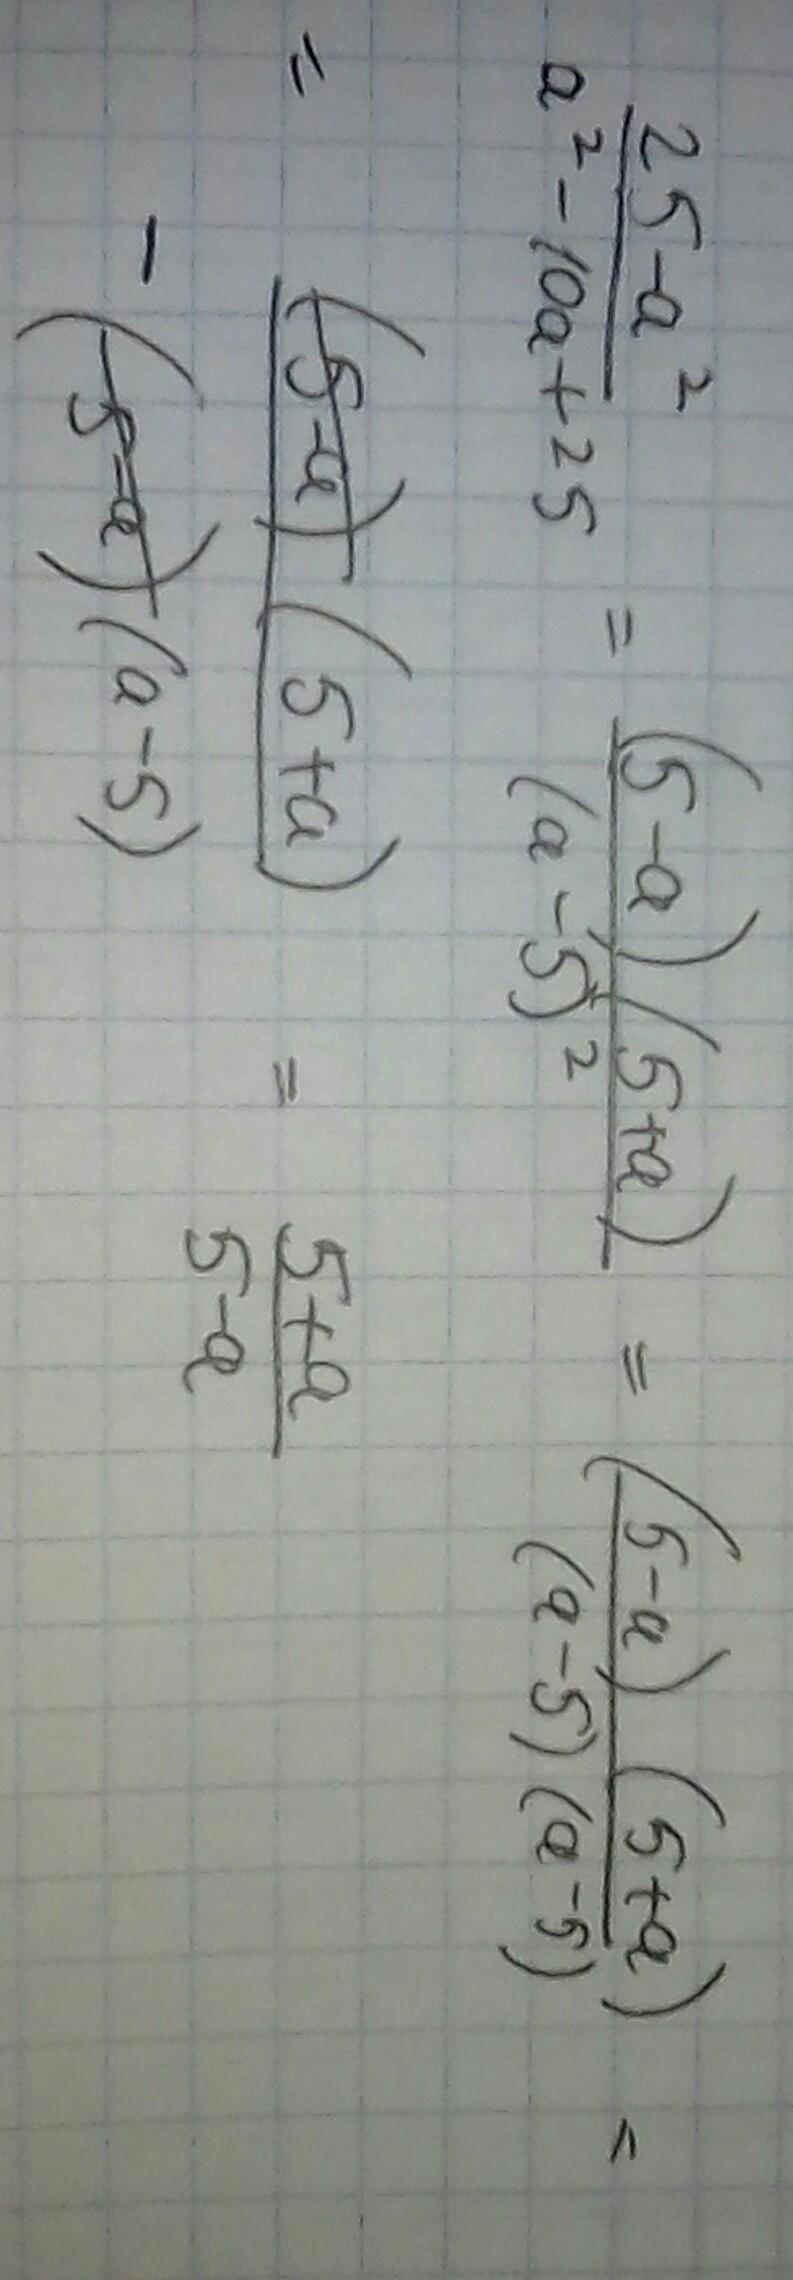 25-a² / a²-10a+25 = (5-a)(5+a) / (a-5)² = (5-a)(5+a) / (a-5)(a-5) =
= (5-a)(5+a) / -(5-a)(a-5) = 5+a / 5-a